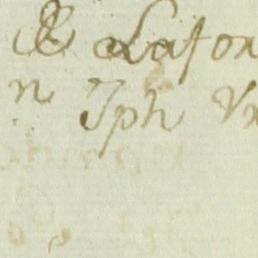 & Lafon
n Jph Vr